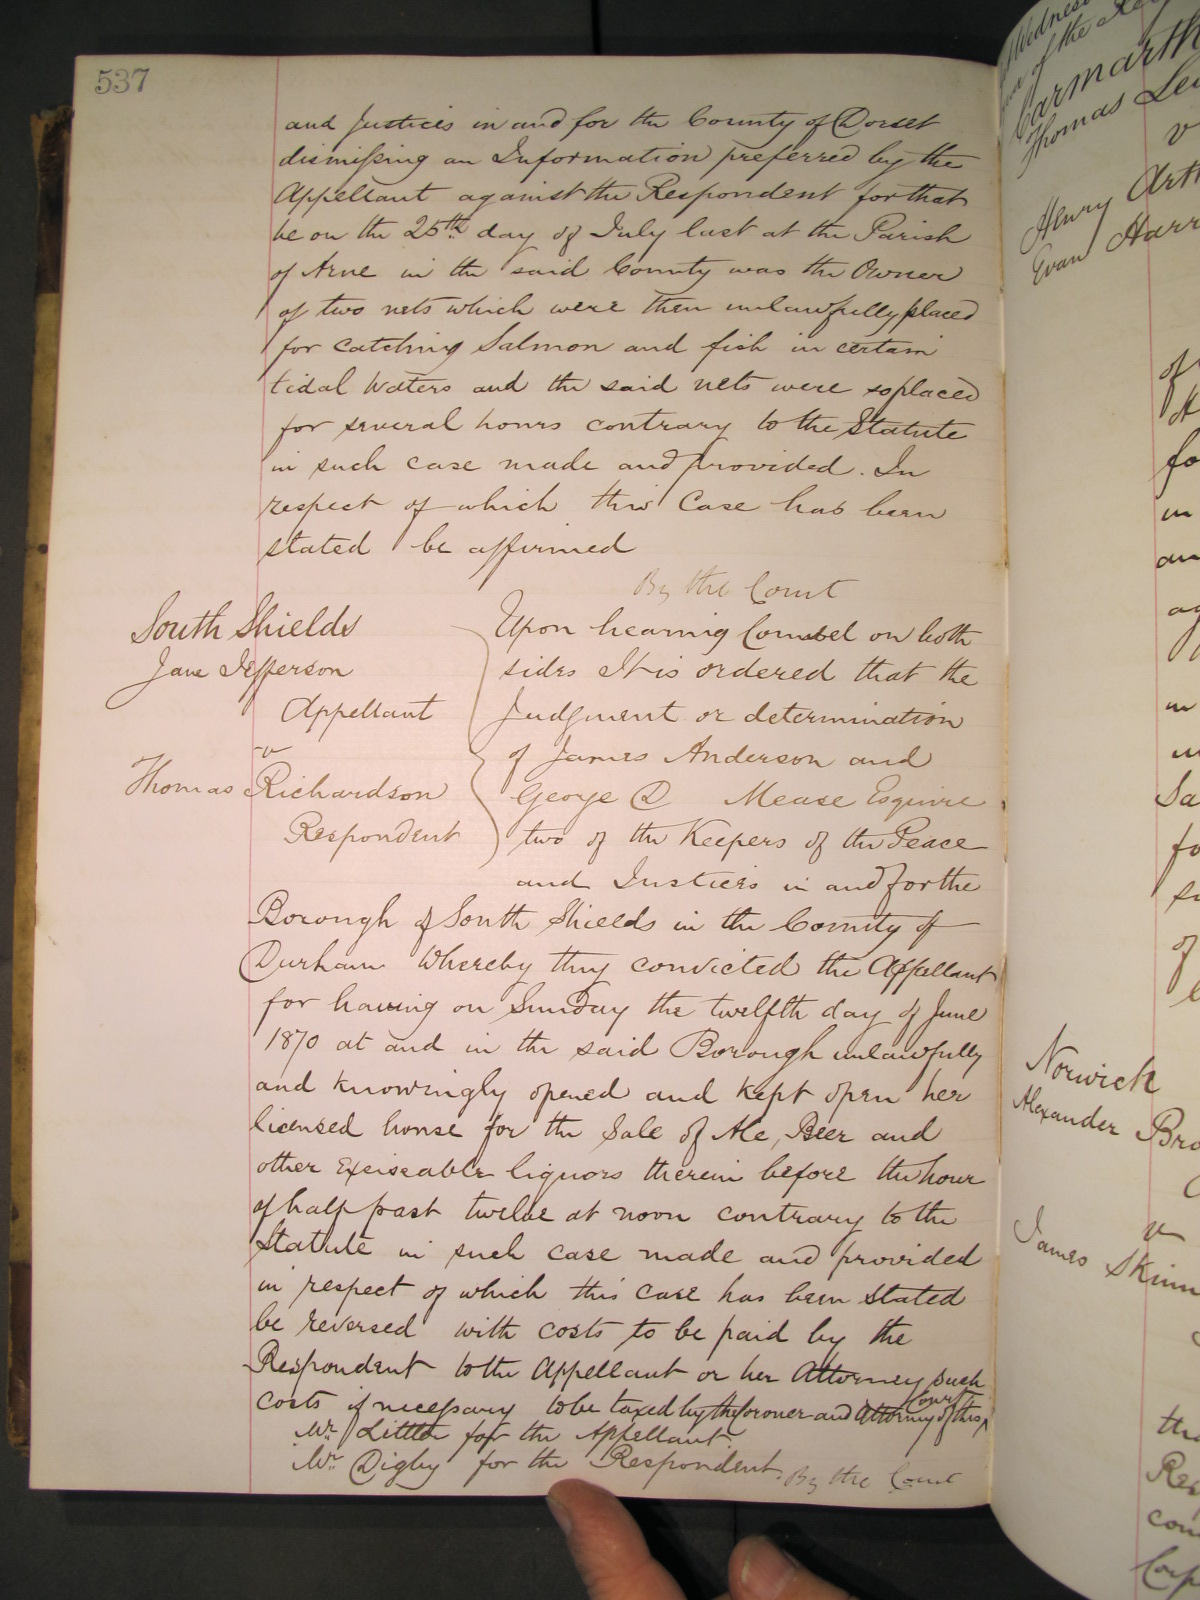 537
and Justices in and for the County of Dorset
dismissing an Information preferred by the
Appellant against the Respondent for that
he on the 25th day of July last at the Parish
of Arne in the said County was the Owner
of two nets which were then unlawfully placed
for catching Salmon and fish in certain
tidal Waters and the said nets were so placed
for several hours contrary to the Statute
in such case made and provided. In
respect of which this Case has been
stated be affirmed
By the Court
South Shields
Jane Jefferson
Appellant
v
Thomas Richardson
Respondent
Upon hearing Counsel on both
sides It is ordered that the
Judgment or determination
of James Anderson and
George D Mease Esquire
two of the Keepers of the Peace
and Justices in and for the
Borough of South Shields in the County of
Durham Whereby they convicted the Appellant
for having on Sunday the twelfth day of June
1870 at and in the said Borough unlawfully
and knowingly opened and kept open her
licensed house for the Sale of Ale, Beer and
other Exciseable liquors therein before the hour
of half past twelve at noon contrary to the
Statute in such case made and provided
in respect of which this Case has been Stated
be reversed with costs to be paid by the
Respondent to the Appellant or her Attorney such
costs if necessary to be taxed by the Coroner and Attorney of this Court
Mr. Littler for the Appellant.
Mr. Digby for the Respondent.
By the Court
of the
Carmarth
Thomas Lew
v
Henry Arth
Evan Harr
of
fo
in
an
ag
in
Sa
fo
of
Norwich
Alexander Bro
v
James Skinn
the
Res
con